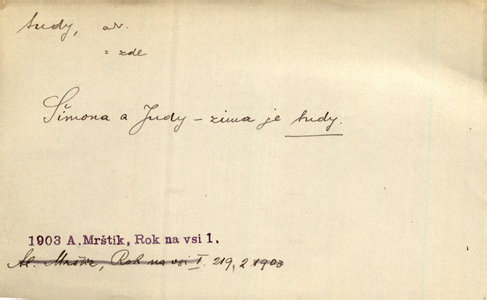 tudy, adv.
= zde
Šimona a Judy – zima je tudy.
1903 A. Mrštík, Rok na vsi 1.
Al. Mrštík, Rok na vsi I. 219, 2 1903